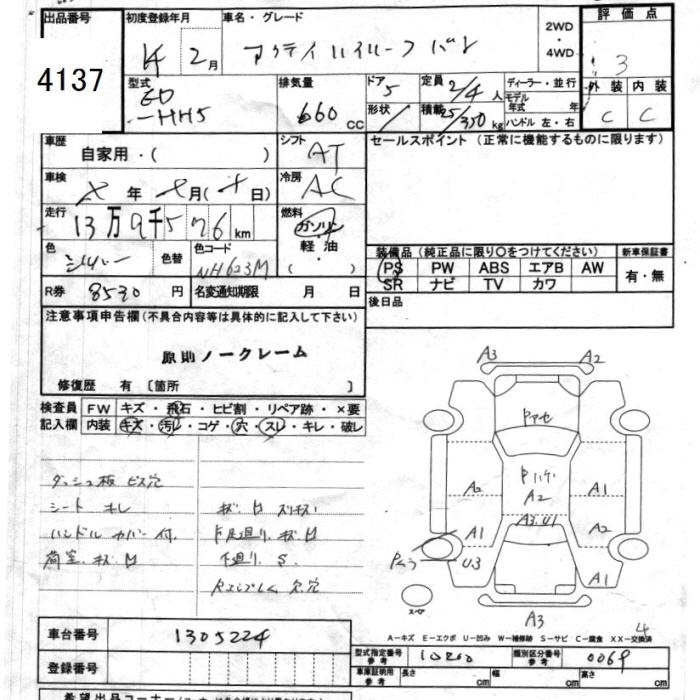 出品番号 初度登録年月 車名・グレード 2WD・4WD 評価点
4137 14 2月 アクティハイルーフバン 3
型式 排気量 ドア 5 定員 2/4人 ディーラー・並行 外装 内装
-HH5 660 cc 形状 積載 350 kg モデル年式 年 C C
ハンドル 左・右
車歴 シフト セールスポイント(正常に機能するものに限ります)
自家用・( ) AT
車検 冷房
年 月( 日) AC
走行 燃料
13万9千576km ガソリン
軽油
( )
色 シルバー 色替 色コード NH623M
装備品(純正品に限り○をつけてください) 新車保証書
PS PW ABS エアB AW 有・無
SR ナビ TV カワ
R券 8530円 名変通知期限 月 日 後日品
注意事項申告欄(不具合内容等は具体的に記入して下さい)
原則ノークレーム
修復歴 有〔箇所 〕
検査員 FW キズ・飛石・ヒビ割・リペア跡・×要
記入欄 内装 キズ・汚れ・コゲ・穴・スレ・キレ・破レ
ダッシュ板 ビス穴
シート キレ
ハンドル カバー付.
荷室 キズ
下廻り. S.
A3 A2
A2 A1
A2
A1 A2
A3 U1
U3 A1
A3
スペア
A-キズ E-エクボ U-凹み W-補修跡 S-サビ C-腐食 XX-交換済
車台番号 1305224
型式指定番号 参考 類別区分番号 参考 0069
登録番号
車庫証明用 参考 長さ cm 幅 cm 高さ cm
希望出品コーナー